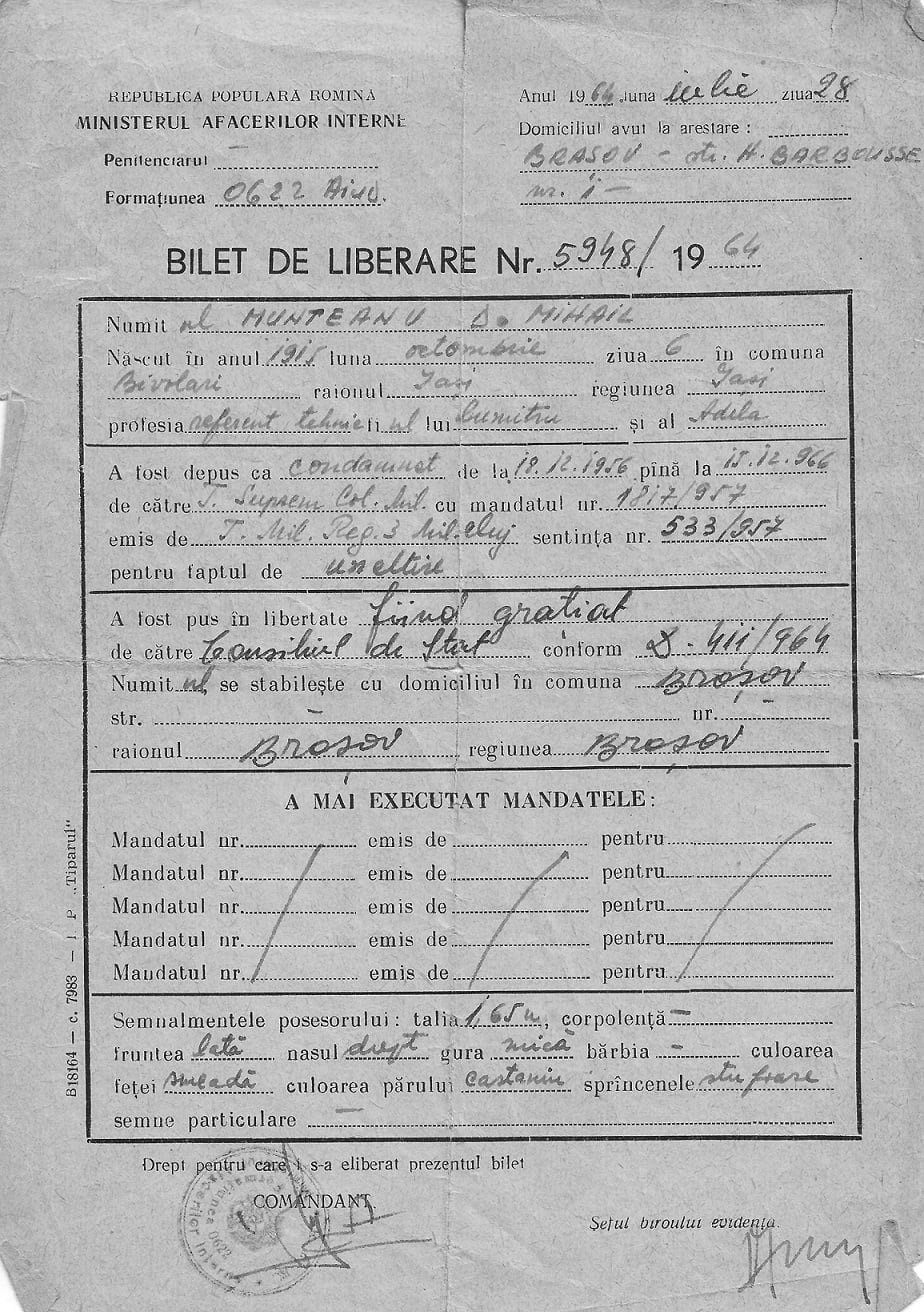 REPUBLICA POPULARĂ ROMINĂ
MINISTERUL AFACERILOR INTERNE
Penitenciarul —
Formațiunea 0622 Aiud.
Anul 1964 luna iulie ziua 28
Domiciliul avut la arestare :
BRASOV - str. H. BARBOUSSE
nr. 1 —
BILET DE LIBERARE Nr. 5948/ 1964
Numit ul MUNTEANU D. MIHAIL
Născut în anul 1915 luna octombrie ziua 6 în comuna
Bivolari raionul Iași regiunea Iași
profesia referent tehnic fi ul lui Dumitru și al Adela
A fost depus ca condamnat de la 18.12.1956 pînă la 15.12.966
de către T. Suprem Col. Mil. cu mandatul nr. 1817/957
emis de T. Mil. Reg. 3 Mil. Cluj sentința nr. 533/957
pentru faptul de uneltire
A fost pus în libertate fiind grațiat
de către Consiliul de Stat conform D. 411/964
Numit ul se stabilește cu domiciliul în comuna Brașov
str. — nr. —
raionul Brașov regiunea Brașov
A MAI EXECUTAT MANDATELE :
Mandatul nr. emis de pentru
Mandatul nr. emis de pentru
Mandatul nr. emis de pentru
Mandatul nr. emis de pentru
Mandatul nr. emis de pentru
Semnalmentele posesorului : talia 1,65 m, corpolență —
fruntea lată nasul drept gura mică bărbia — culoarea
feței smeadă culoarea părului castaniu sprîncenele stufoase
semne particulare —
Drept pentru care i s-a eliberat prezentul bilet
COMANDANT,
Șeful biroului evidența.
B18164 — c. 7983 — I. P. „Tiparul"